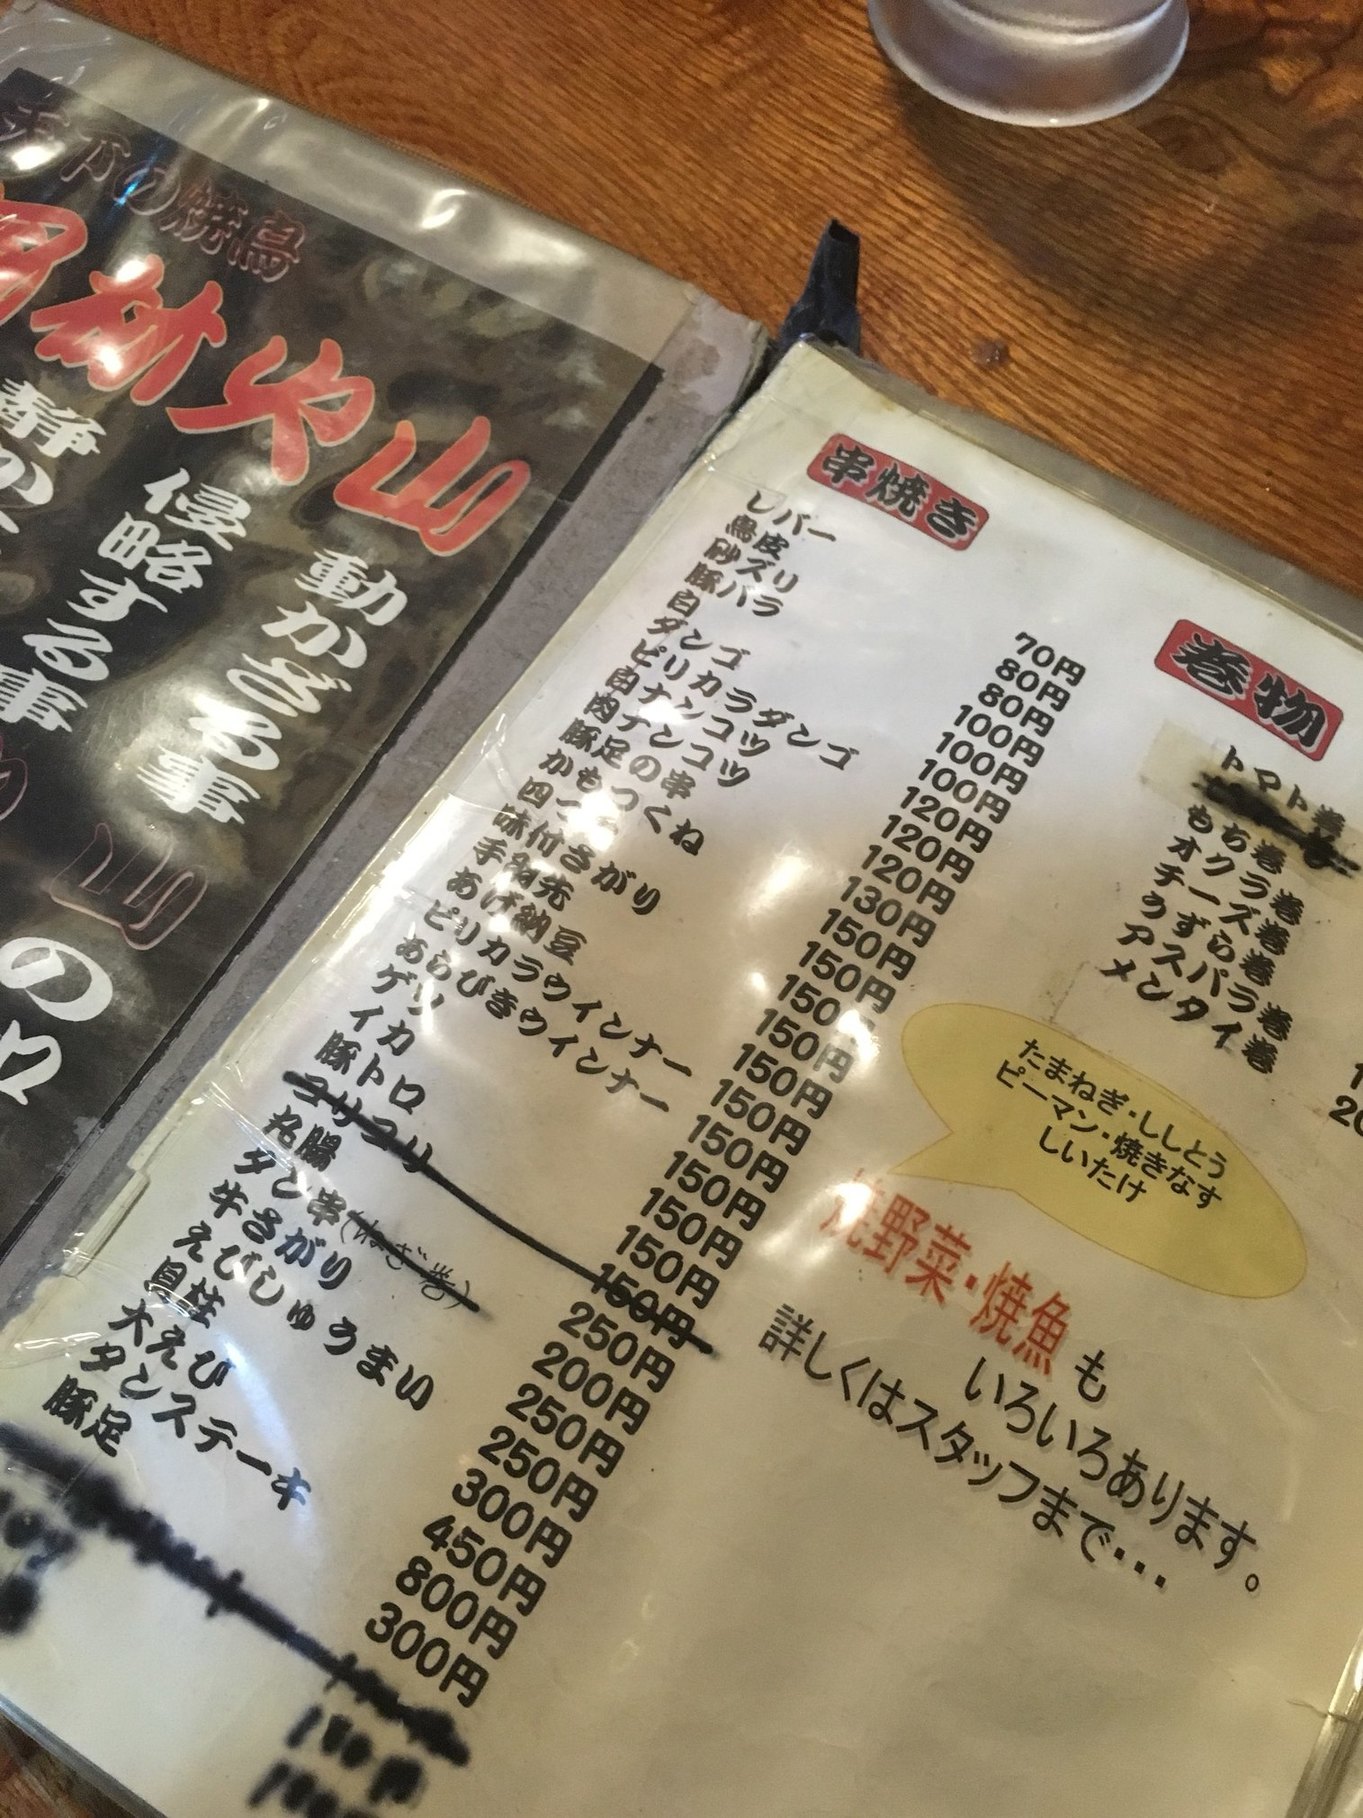 天下の焼鳥
林火山
動かざる事
侵略する事
静か
山
の
串焼き
レバー 70円
鳥皮 80円
砂ズリ 80円
豚バラ 100円
白 100円
ダンゴ 100円
ピリカラダンゴ 120円
白ナンコツ 120円
肉ナンコツ 120円
豚足の串 130円
かもつくね 150円
四つ 150円
味付さがり 150円
手羽先 150円
あげ納豆 150円
ピリカラウインナー 150円
あらびきウインナー 150円
ゲソ 150円
イカ 150円
豚トロ 150円
コリコリ 150円
丸腸 250円
タン串(ねぎ巻) 200円
牛さがり 250円
えびしゅうまい 250円
貝柱 300円
大えび 450円
タンステーキ 800円
豚足 300円
巻物
トマト巻
もち巻
オクラ巻
チーズ巻
うずら巻
アスパラ巻
メンタイ巻
たまねぎ・ししとう
ピーマン・焼きなす
しいたけ
焼野菜・焼魚も
いろいろあります。
詳しくはスタッフまで・・・